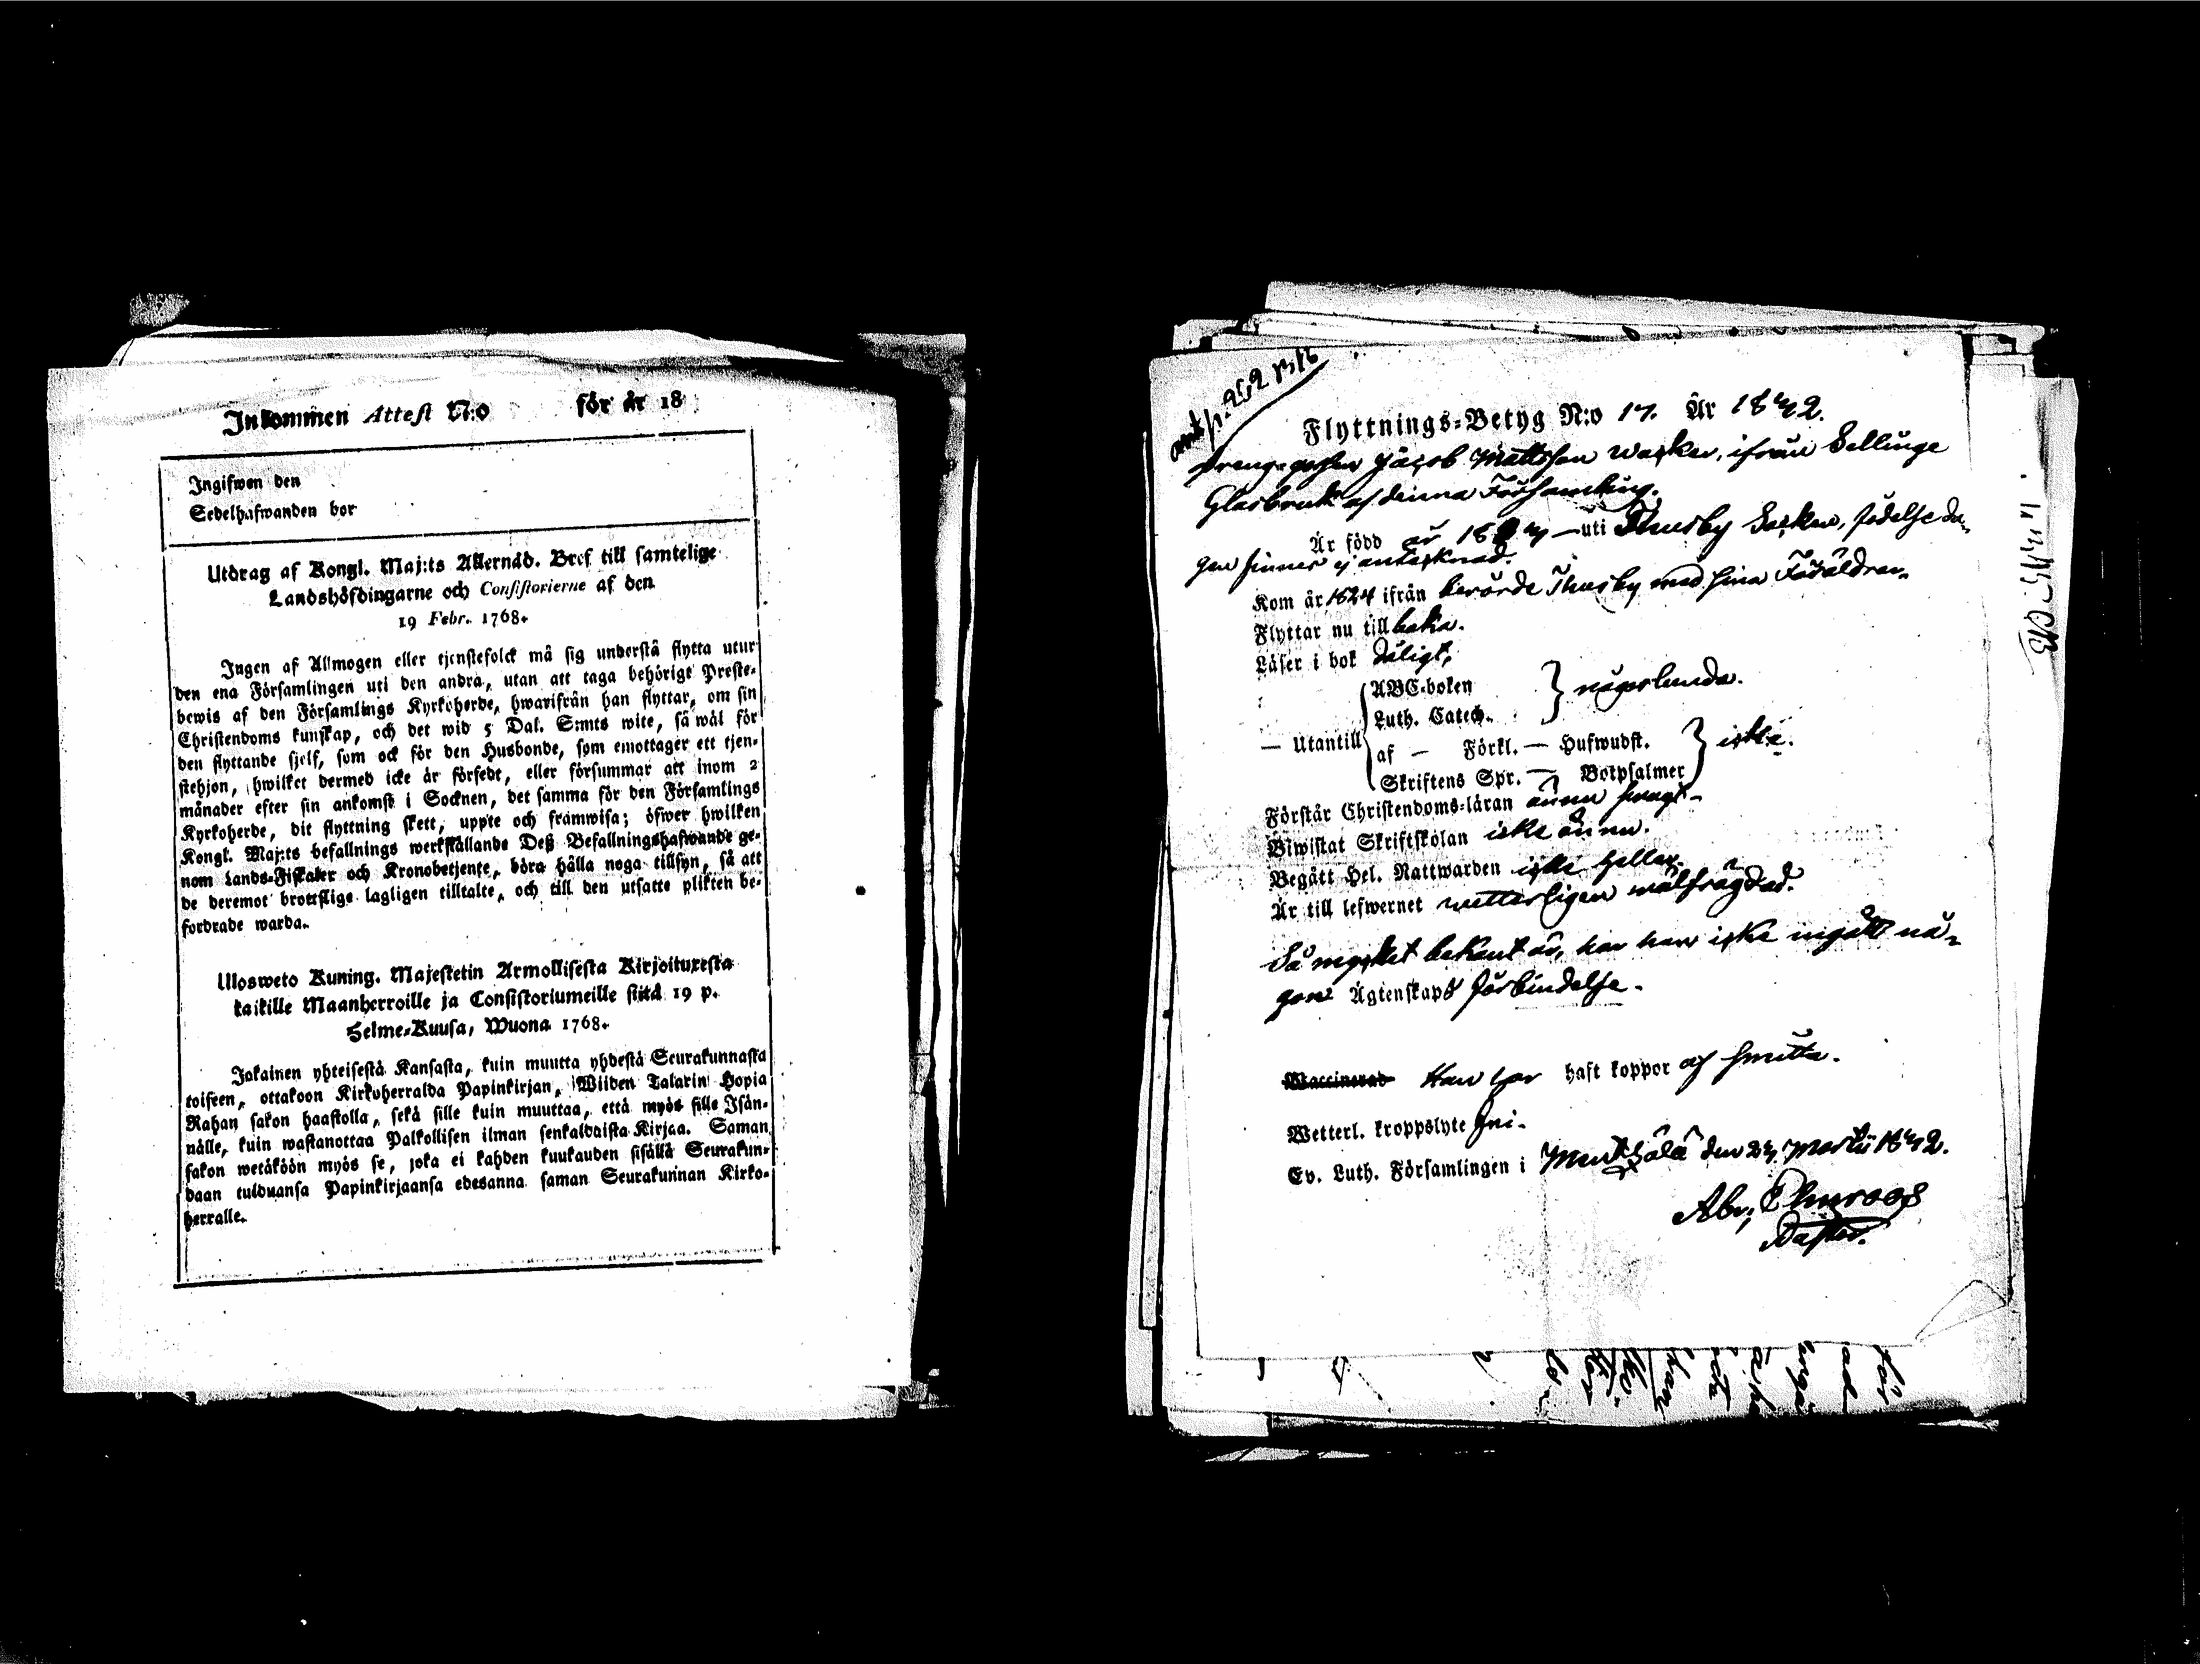 Inkommen Attest N:o för år 18
Ingifwen den
Sedelhafwanden bor
Utdrag af Kongl. Maj:ts Allernåd. Bref till samtelige
Landshöfdingarne och Consistorierne af den
19 Febr. 1768.
Ingen af Allmogen eller tjenstefolck må sig understå flytta utur
den ena Församlingen uti den andra, utan att taga behörigt Preste-
bewis af den Församlings Kyrkoherde, hwarifrån han flyttar, om sin
Christendoms kunskap, och det wid 5 Dal. S:mts wite, så wäl för
den flyttande sjelf, som ock för den Husbonde, som emottager ett tjen-
stehjon, hwilket dermed icke är försedt, eller försummar att inom 2
månader efter sin ankomst i Socknen, det samma för den Församlings
Kyrkoherde, dit flyttning skett, uppte och framwisa; öfwer hwilken
Kongl. Maj:ts befallnings werkställande Deß Befallningshafwande ge-
nom Lands-Fiskaler och Kronobetjente, böra hålla noga tillsyn, så att
de deremot brottslige lagligen tilltalte, och till den utsatte plikten be-
fordrade warda.
Ulosweto Kuning. Majestetin Armollisesta Kirjoituxesta
kaikille Maanherroille ja Consistoriumeille siitä 19 p.
Helme-Kuusa, Wuona 1768.
Jokainen yhteisestä Kansasta, kuin muutta yhdestä Seurakunnasta
toiseen, ottakoon Kirkoherralda Papinkirjan, Wiiden Talarin Hopia
Rahan sakon haastolla, sekä sille kuin muuttaa, että myös sille Isän-
nälle, kuin wastanottaa Palkollisen ilman senkaldaista Kirjaa. Saman
sakon wetäköön myös se, joka ei kahden kuukauden sisällä Seurakun-
daan tulduansa Papinkirjaansa edesanna saman Seurakunnan Kirko-
herralle.
Flyttnings-Betyg N:o 17. År 1842.
Jacob Mattsson ifrån Sellinge
Glasbruk af denna Församling.
Är född år 18 uti Thusby Socken, födelseda-
gen finnes ej antecknad.
Kom år 1824 ifrån berörde Thusby med sina Föräldrar.
Flyttar nu till baka.
Läser i bok dåligt,
ABC-boken
Luth. Catech. någorlunda.
— Utantill
af — Förkl. — Hufwudst.
Skriftens Spr. — Botpsalmer icke.
Förstår Christendoms-läran ännu swagt-
Biwistat Skriftskolan icke ännu.
Begått Hel. Nattwarden icke heller.
Är till lefwernet wetterligen wälfrägdad.
Så mycket bekant är, har han icke ingått nå-
gon Ägtenskaps förbindelse.
Waccinerad Han har haft koppor af smitta.
Wetterl. kroppslyte fri.
Ev. Luth. Församlingen i Mentsälä den 24 Martii 1842.
Pastor.